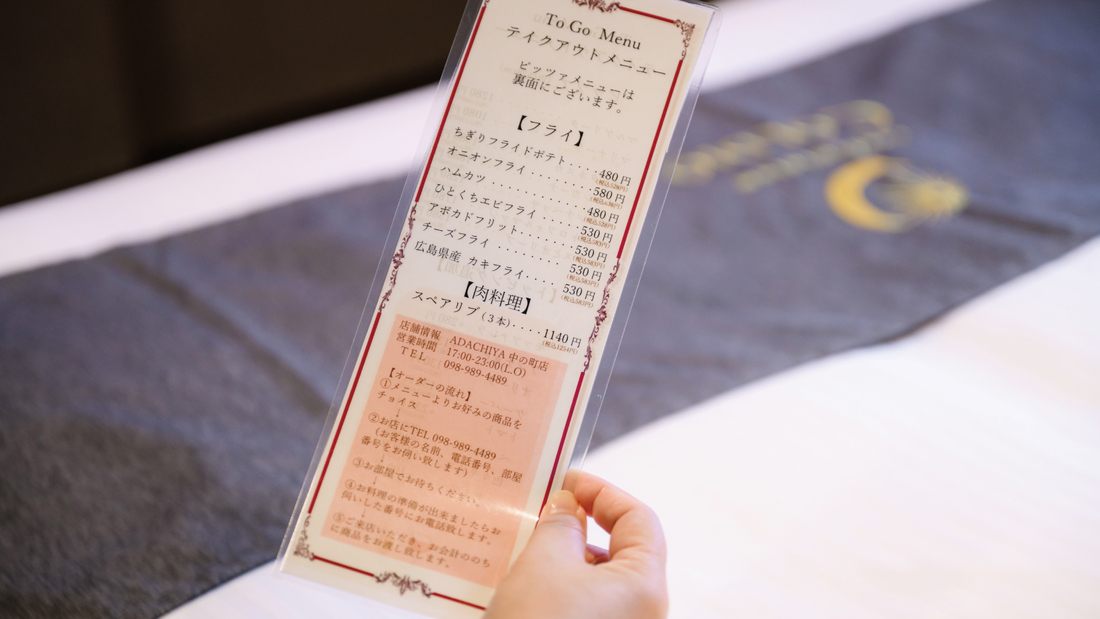 To Go Menu
テイクアウトメニュー
ピッツァメニューは
裏面にございます。
【フライ】
ちぎりフライドポテト....480円
(税込528円)
オニオンフライ..........580円
(税込638円)
ハムカツ................480円
(税込528円)
ひとくちエビフライ......530円
(税込583円)
アボカドフリット........530円
(税込583円)
チーズフライ............530円
(税込583円)
広島県産 カキフライ.....530円
(税込583円)
【肉料理】
スペアリブ(3本).....1140円
(税込1254円)
店舗情報 ADACHIYA 中の町店
営業時間 17:00-23:00(L.O)
TEL 098-989-4489
【オーダーの流れ】
①メニューよりお好みの商品を
チョイス
↓
②お店にTEL 098-989-4489
(お客様の名前、電話番号、部屋
番号をお伺い致します)
↓
③お部屋でお待ちください。
↓
④お料理の準備が出来ましたらお
伺いした番号にお電話致します。
↓
⑤ご来店いただき、お会計ののち
に商品をお渡し致します。